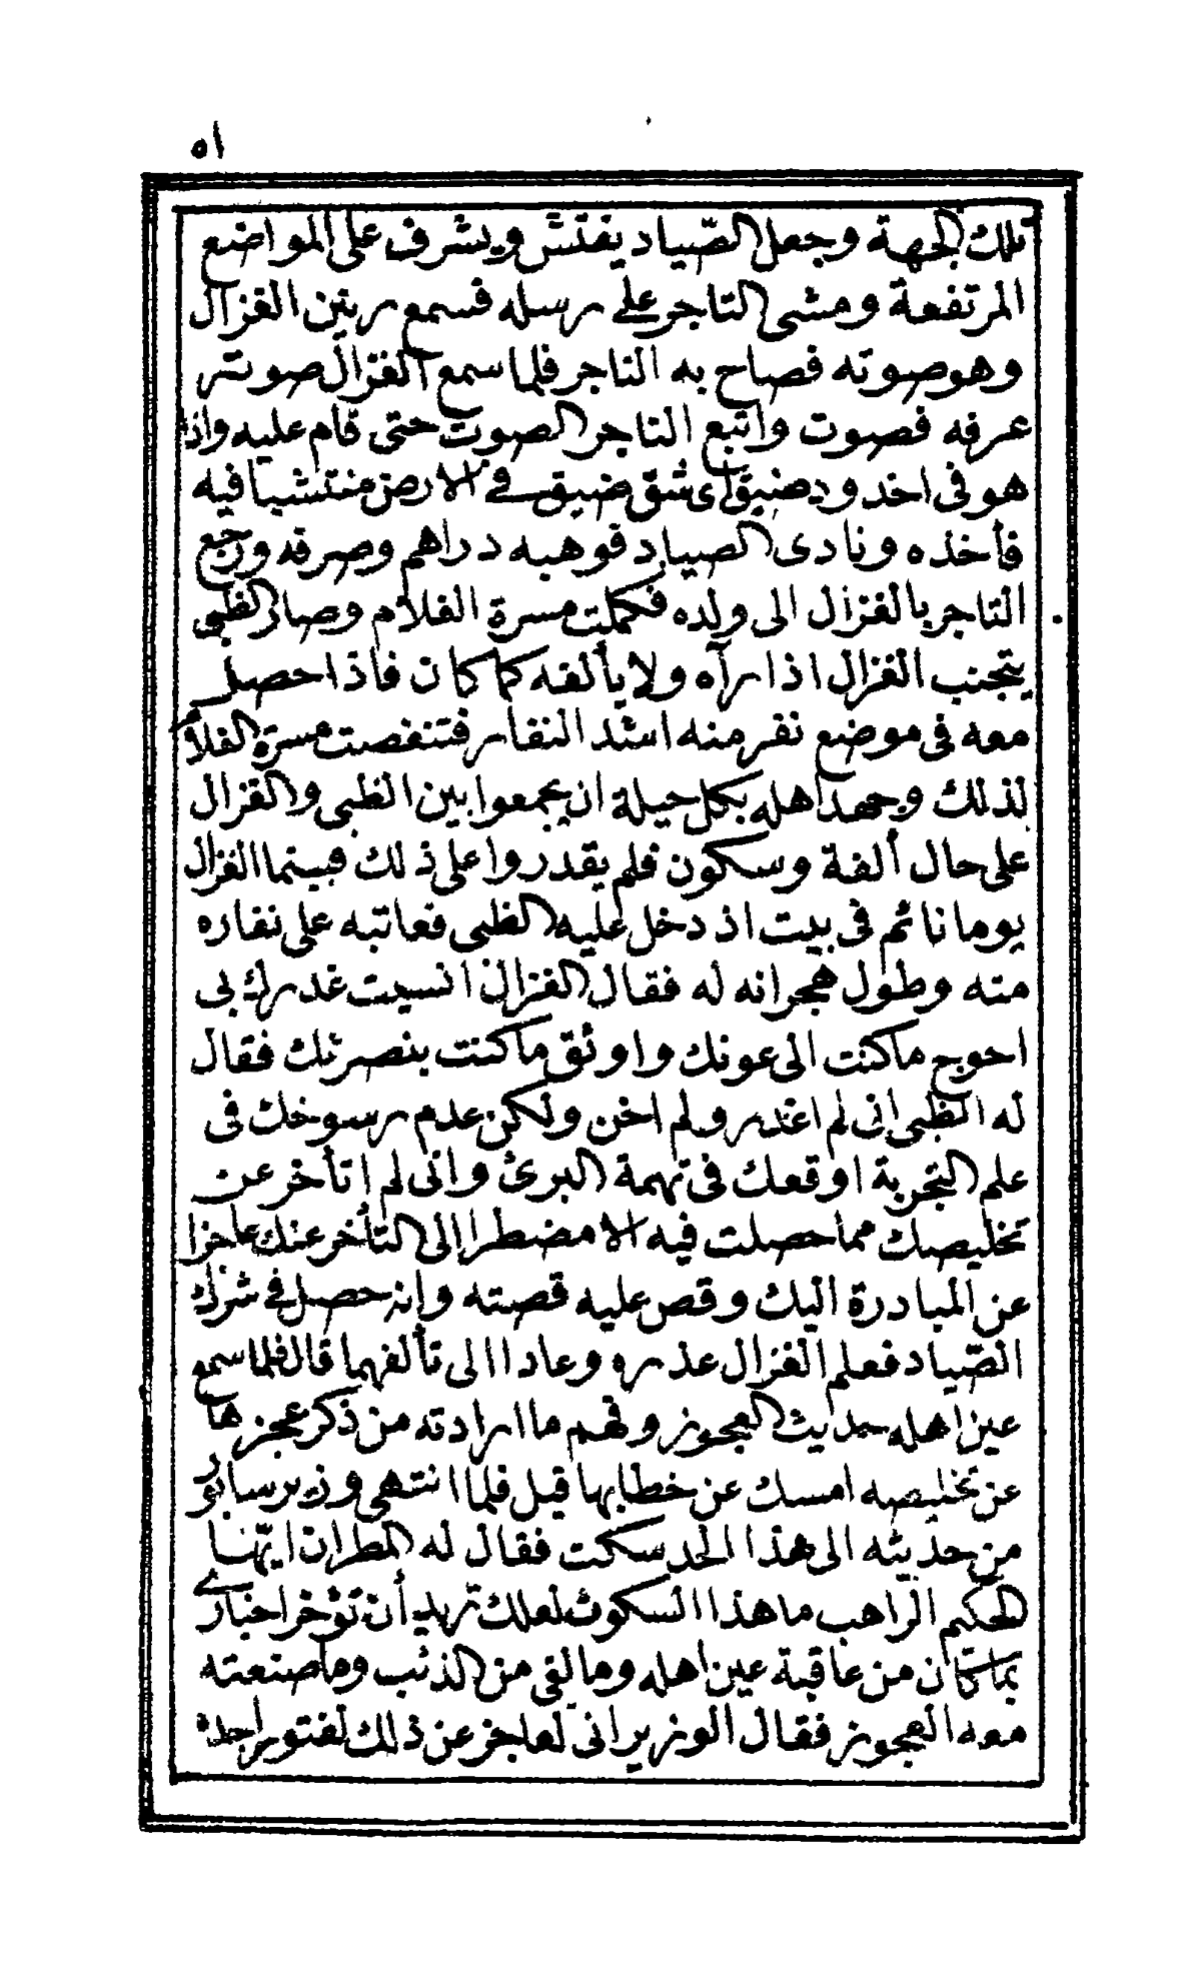 ٥١
تلك الجهة وجعل الصّياد يفتش ويشرف على المواضع
المرتفعة ومشى التاجر على رسله فسمع رنين الغزال
وهو صوته فصاح به التاجر فلما سمع الغزال صوته
عرفه فصوت واتبع التاجر الصوت حتى قام عليه واذا
هو فى اخدود ضيق اى شق ضيق فى الارض منتشبا فيه
فأخذه ونادى الصياد فوهبه دراهم وصرفه ورجع
التاجر بالغزال الى ولده فكملت مسرة الغلام وصار الظبى
يتجنب الغزال اذا رآه ولا يألفه كما كان فاذا حصل
معه فى موضع نفر منه اشد النفار فتنغصت مسرة الغلام
لذلك وجهد اهله بكل حيلة ان يجمعوا بين الظبى والغزال
على حال ألفة وسكون فلم يقدروا على ذلك فبينما الغزال
يوما نائم فى بيت اذ دخل عليه الظبى فعاتبه على نفاره
منه وطول هجرانه له فقال الغزال انسيت غدرك بى
احوج ما كنت الى عونك واوثق ما كنت بنصرتك فقال
له الظبى إنى لم اغدر ولم اخن ولكن عدم رسوخك فى
علم التجربة اوقعك فى تهمة البرئ وانى لم اتأخر عن
تخليصك مما حصلت فيه الا مضطرا إلى التأخر عنك عاجزا
عن المبادرة اليك وقص عليه قصته وانه حصل فى شرك
الصّياد فعلم الغزال عذره وعادا الى تألفهما قال فلما سمع
عين اهله حديث العجوز وفهم ما ارادته من ذكر عجزها
عن تخليصه امسك عن خطابها قيل فلما انتهى وزير سابور
من حديثه الى هذا الحد سكت فقال له المطران ايّهـا
الحكيم الرّاهب ما هذا السكوت لعلك تريد أن تؤخر اخبارى
بما كان من عاقبة عين اهله وما لقى من الذئب وما صنعته
معه العجوز فقال الوزير انى لعاجز عن ذلك لفتور اجده